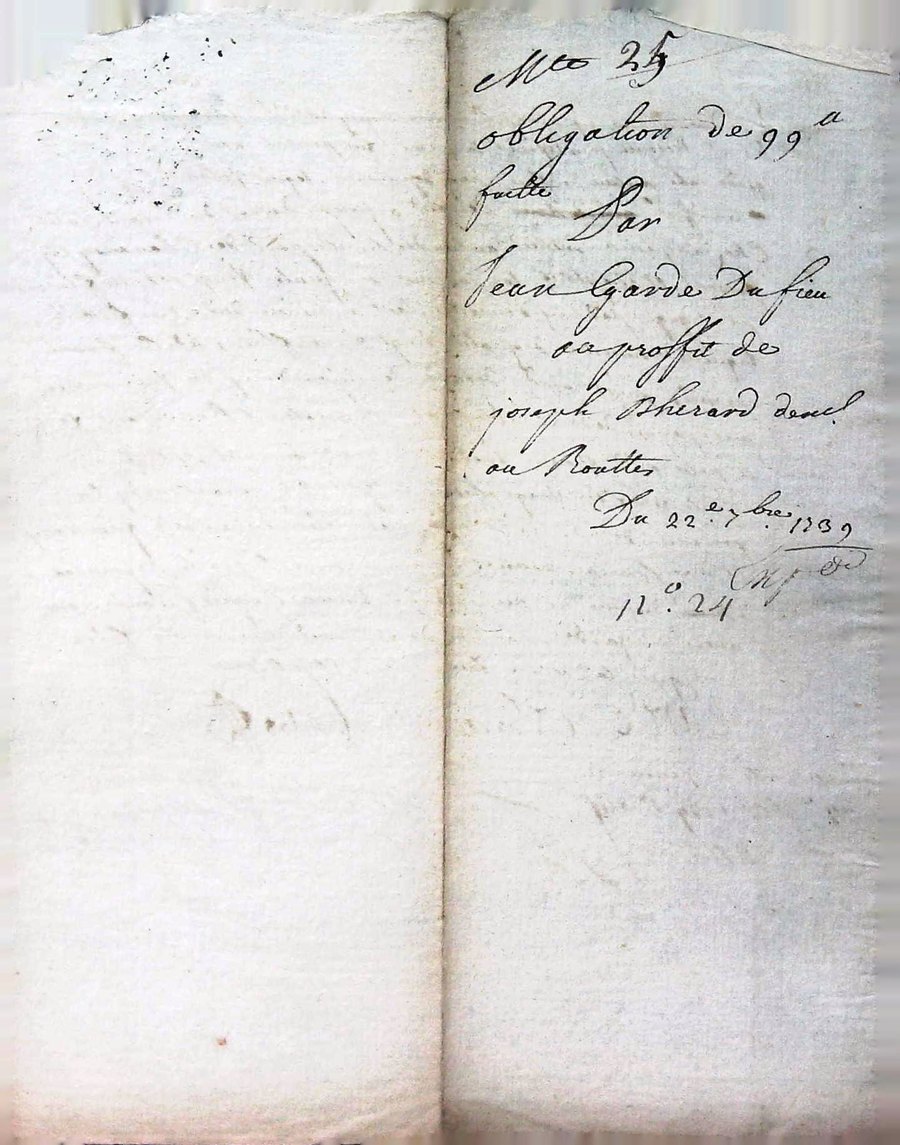 Mte 25
obligation de 99 a
faitte
Par
Jean Garde Du fieu
au proffit de
joseph Bherard
au Routtes
Du 22e. 7bre. 1739
n°. 24